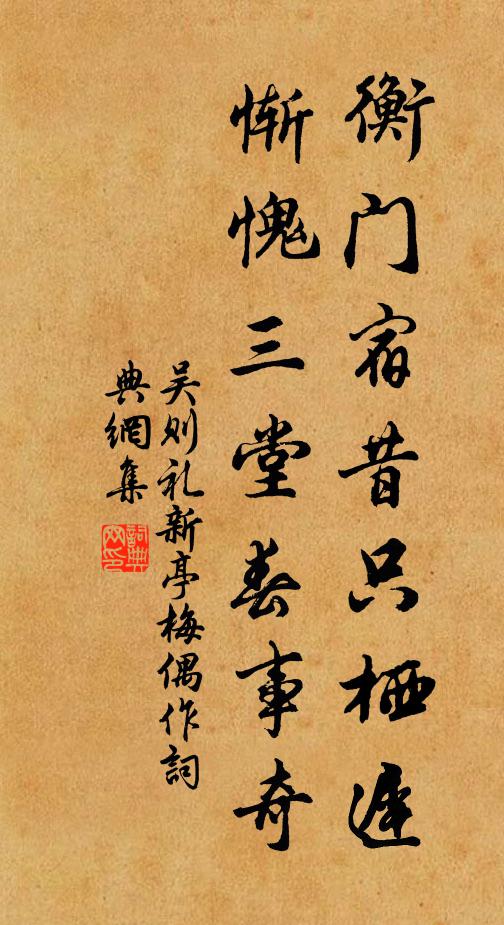 衡门宿昔只栖遲
惭愧三堂春事奇
吴则礼新亭梅偶作詞
典網集
詞典网印